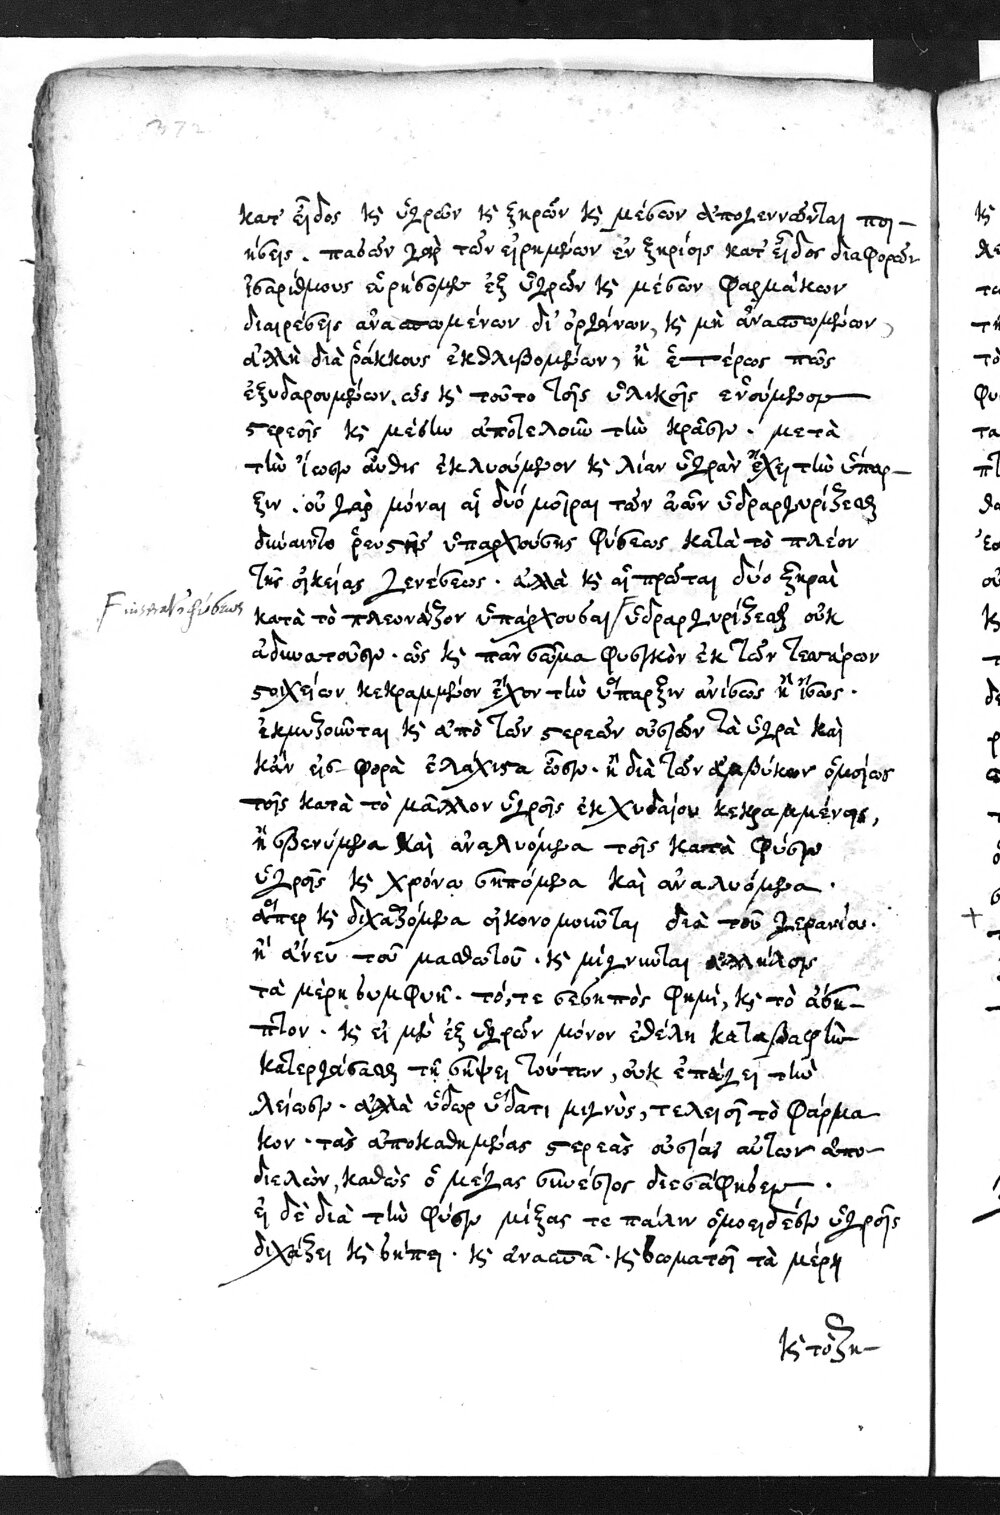 372
κατ' εἶδος κ̀ ὑγρῶν κ̀ ξηρῶν κ̀ μέσων ἀπογεννῶνται ποι-
ήσεις . πασῶν γὰρ τῶν εἰρημένων ἐν ξηρίοις κατ' εἶδος διαφορῶν
ἰσαρίθμους εὑρήσομεν ἐξ ὑγρῶν κ̀ μέσων φαρμάκων
διαιρέσεις ἀνασπωμένων δι' ὀργάνων, κ̀ μὴ ἀνασπωμένων,
ἀλλ' ἢ διὰ ῥάκκους ἐκθλιβομένων, ἢ ἑτέρως πως
ἐξυδαρουμένων . ὡς κ̀ τοῦτο τοῖς ὑλικοῖς
στερεοῖς κ̀ μέσην ἀποτελοῦν τὴν κρᾶσιν . μετὰ
τὴν ἴωσιν αὖθις ἐκλυούμενον κ̀ λίαν ὑγρὰν ἔχει τὴν ὕπαρ-
ξιν . οὐ γὰρ μόναι αἱ δύο μοῖραι τῶν ὠῶν ὑδραργυρίζεσθαι
δύναιντο ῥευστῆς ὑπαρχούσης φύσεως κατὰ τὸ πλέον
τῆς οἰκείας γενέσεως . ἀλλὰ κ̀ αἱ πρῶται δύο ξηραὶ
κατὰ τὸ πλεονάζον ὑπάρχουσαι / ὑδραργυρίζεσθαι οὐκ
ἀδυνατοῦσιν . ὡς κ̀ πᾶν σῶμα φυσικὸν ἐκ τῶν τεσσάρων
στοιχείων κεκραμμένον ἔχον τὴν ὕπαρξιν ἀνίσως ἢ ἴσως .
ἐκμυζοῦνται κ̀ ἀπὸ τῶν στερεῶν οὐσιῶν τὰ ὑγρὰ καὶ
κἂν εἰσφορὰ ἐλάχιστα ὦσιν . ἢ διὰ τῶν ἀμβύκων ὁμοίως
τοῖς κατὰ τὸ μᾶλλον ὑγροῖς ἐκ χυδαίου κεκραμμένοις,
ἢ σβενύμενα καὶ ἀναλυόμενα τοῖς κατὰ φύσιν
ὑγροῖς κ̀ χρόνω σηπόμενα καὶ ἀναλυόμενα .
ἅπερ κ̀ διχαζόμενα οἰκονομοῦνται διὰ τοῦ γερανίου .
ἢ ἄνευ τοῦ μασθωτοῦ . κ̀ μίγνυται ἀλλήλοις
τὰ μέρη συμφυῆ . τό, τε σεσηπὸς φημί, κ̀ τὸ ἄση-
πτον . κ̀ εἰ μὲν ἐξ ὑγρῶν μόνον ἐθέλη καταβαφὴν
κατεργάσασθαι τῆ σήψει τούτων, οὐκ ἐπάγει τὴν
λείωσιν . ἀλλὰ ὕδωρ ὕδατι μιγνὺς, τελειοῖ τὸ φάρμα
κον . τὰς ἀποκαθημένας στερεὰς οὐσίας αὐτῶν ἀπο-
διελών, καθὼς ὁ μέγας συνέσιος διεσάφησεν .
εἰ δὲ διὰ τὴν φύσιν μίξας τε πάλιν ὁμοειδέσιν ὑγροῖς
διχάζει κ̀ σήπει . κ̀ ἀνασπᾶ . κ̀ σωματοῖ τὰ μέρη
κ̀ τὸ ξη-